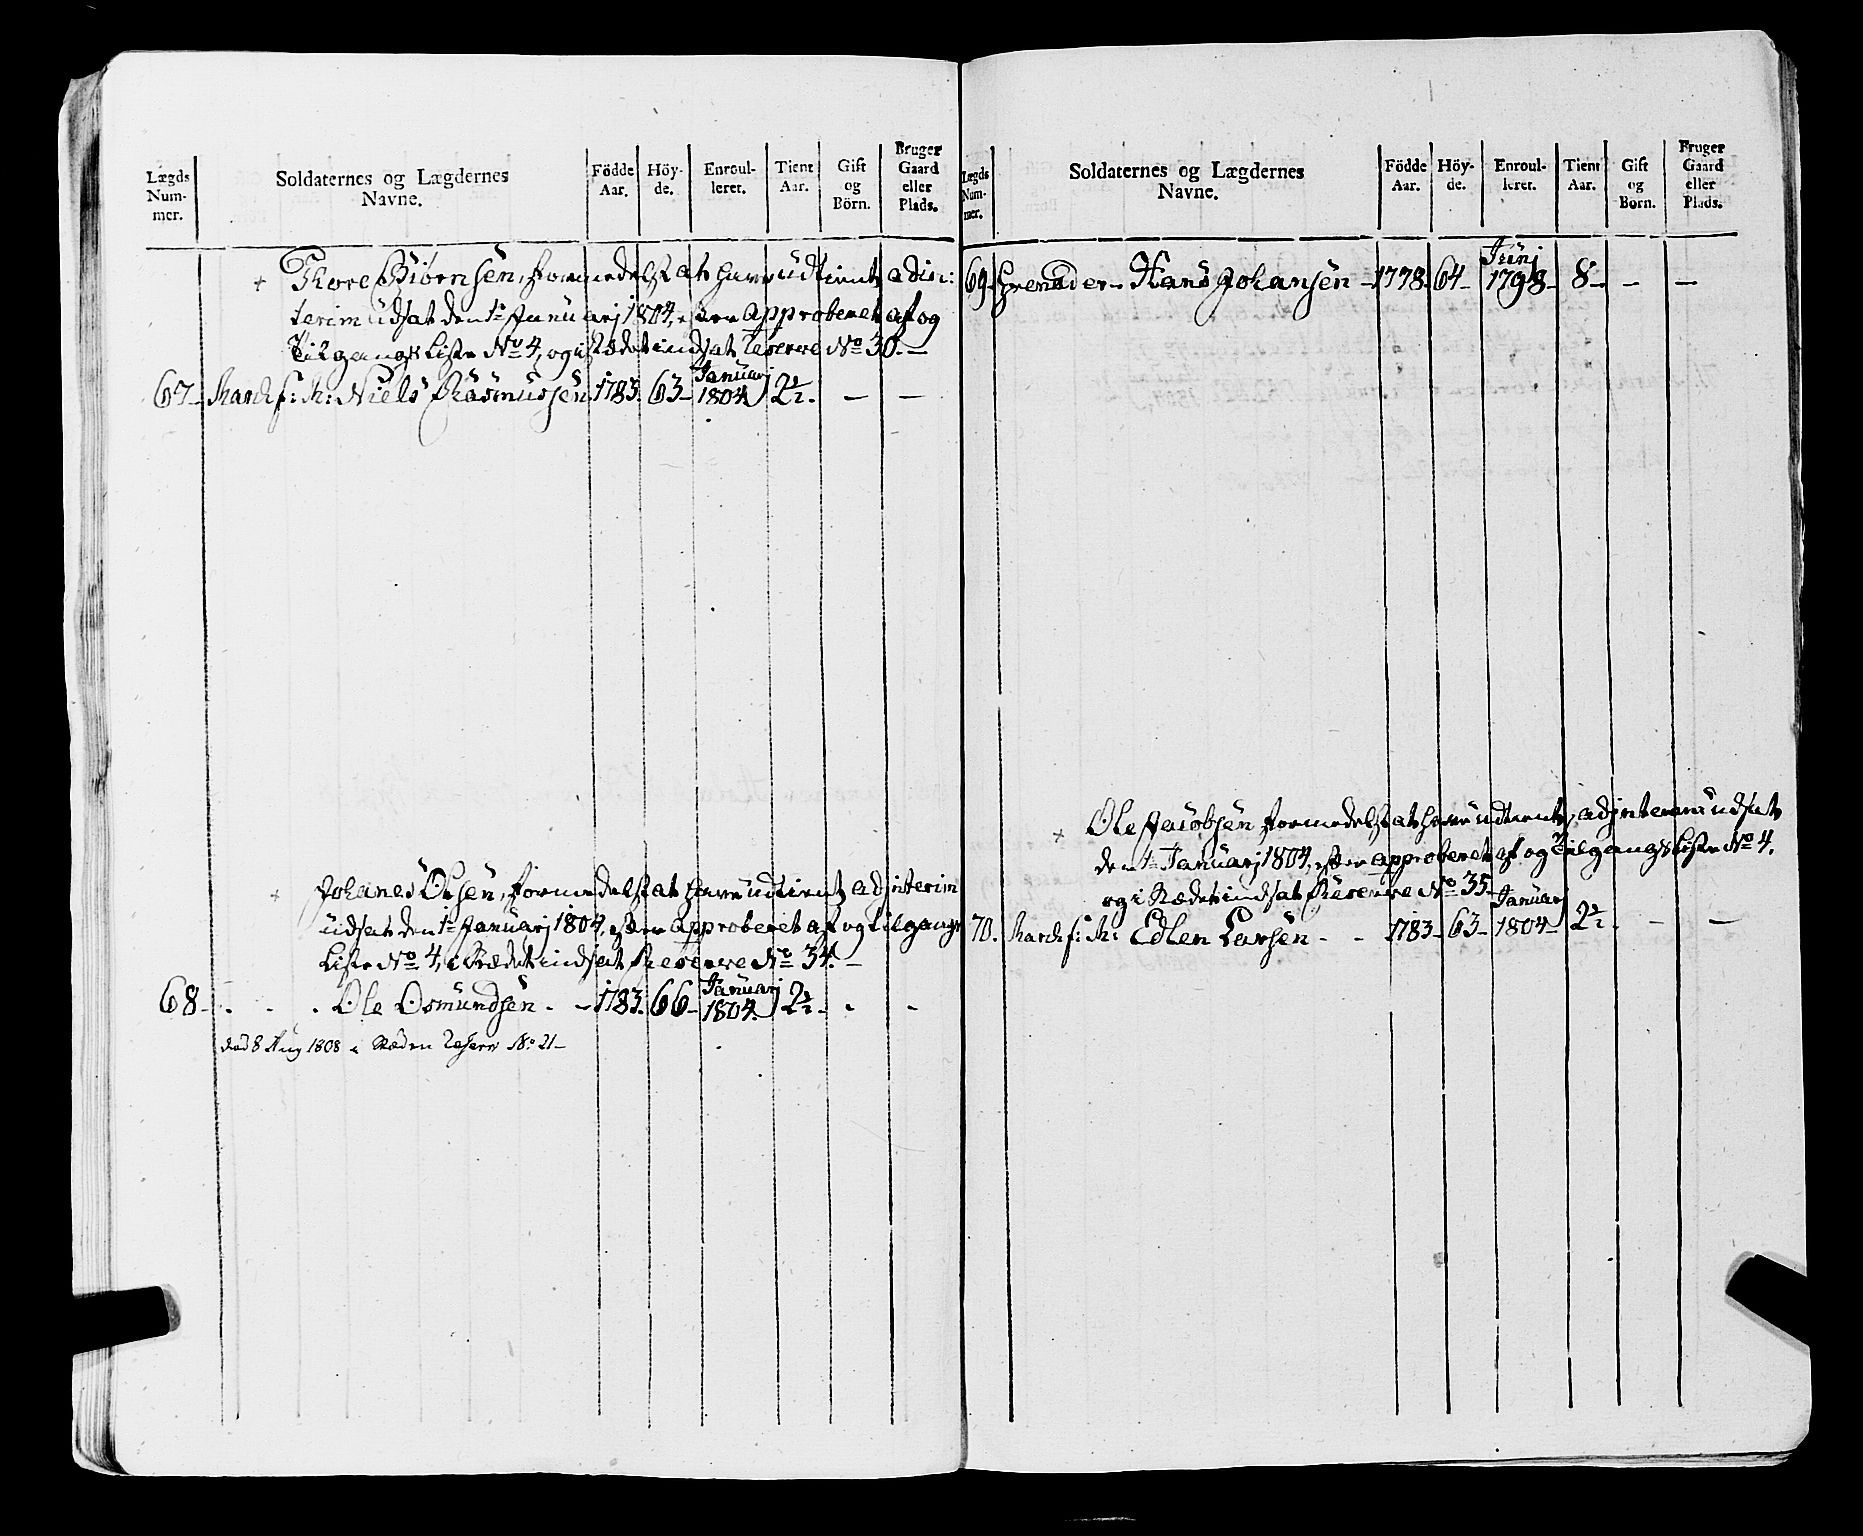 Lægds Num- mer. Soldaternes og Lægdernes Navne. Födde Aar. Höy- de. Enroul- leret. Tient Aar. Gift og Börn. Bruger Gaard eller Plads.
+ Thore Biørnsen, formedelst at have udtient, ad in:
terim udsat den 1te Januarj 1804, efter approberet af og
Tilgangs Liste No 4, og i stædet indsat Reserve No 30. —
67 – Karl f: K: Niels Rasmussen 1783. 63 – Januarj 1804. 2½. — —
+ Johanes Olsen, formedelst at have udtient, ad interim
udsat den 1te Januarj 1804, efter approberet af og tilgangs
Liste No 4, i stædet indsat Reserve No 34. —
68 – . . . Ole Osmundsen . – 1783. 66 – Januarj 1804. 2½ . . -
død 8 Aug 1808 i Stæden Reserv No 21 –
Lægds Num- mer. Soldaternes og Lægdernes Navne. Födde Aar. Höy- de. Enroul- leret. Tient Aar. Gift og Börn. Bruger Gaard eller Plads.
69. Grenader – Hans Johansen – 1778. 64 – Junj 1798 – 8 – – —
+ Ole Jacobsen formedelst at have udtient, ad interim udsat
den 1te Januarj 1804, efter approberet af og Tilgangs Liste No 4.
og i stædet indsat Reserve No 35 –
70. Karl f: K: Edlen Larsen - - 1783 – 63 – Januarj 1804 – 2½ . – —